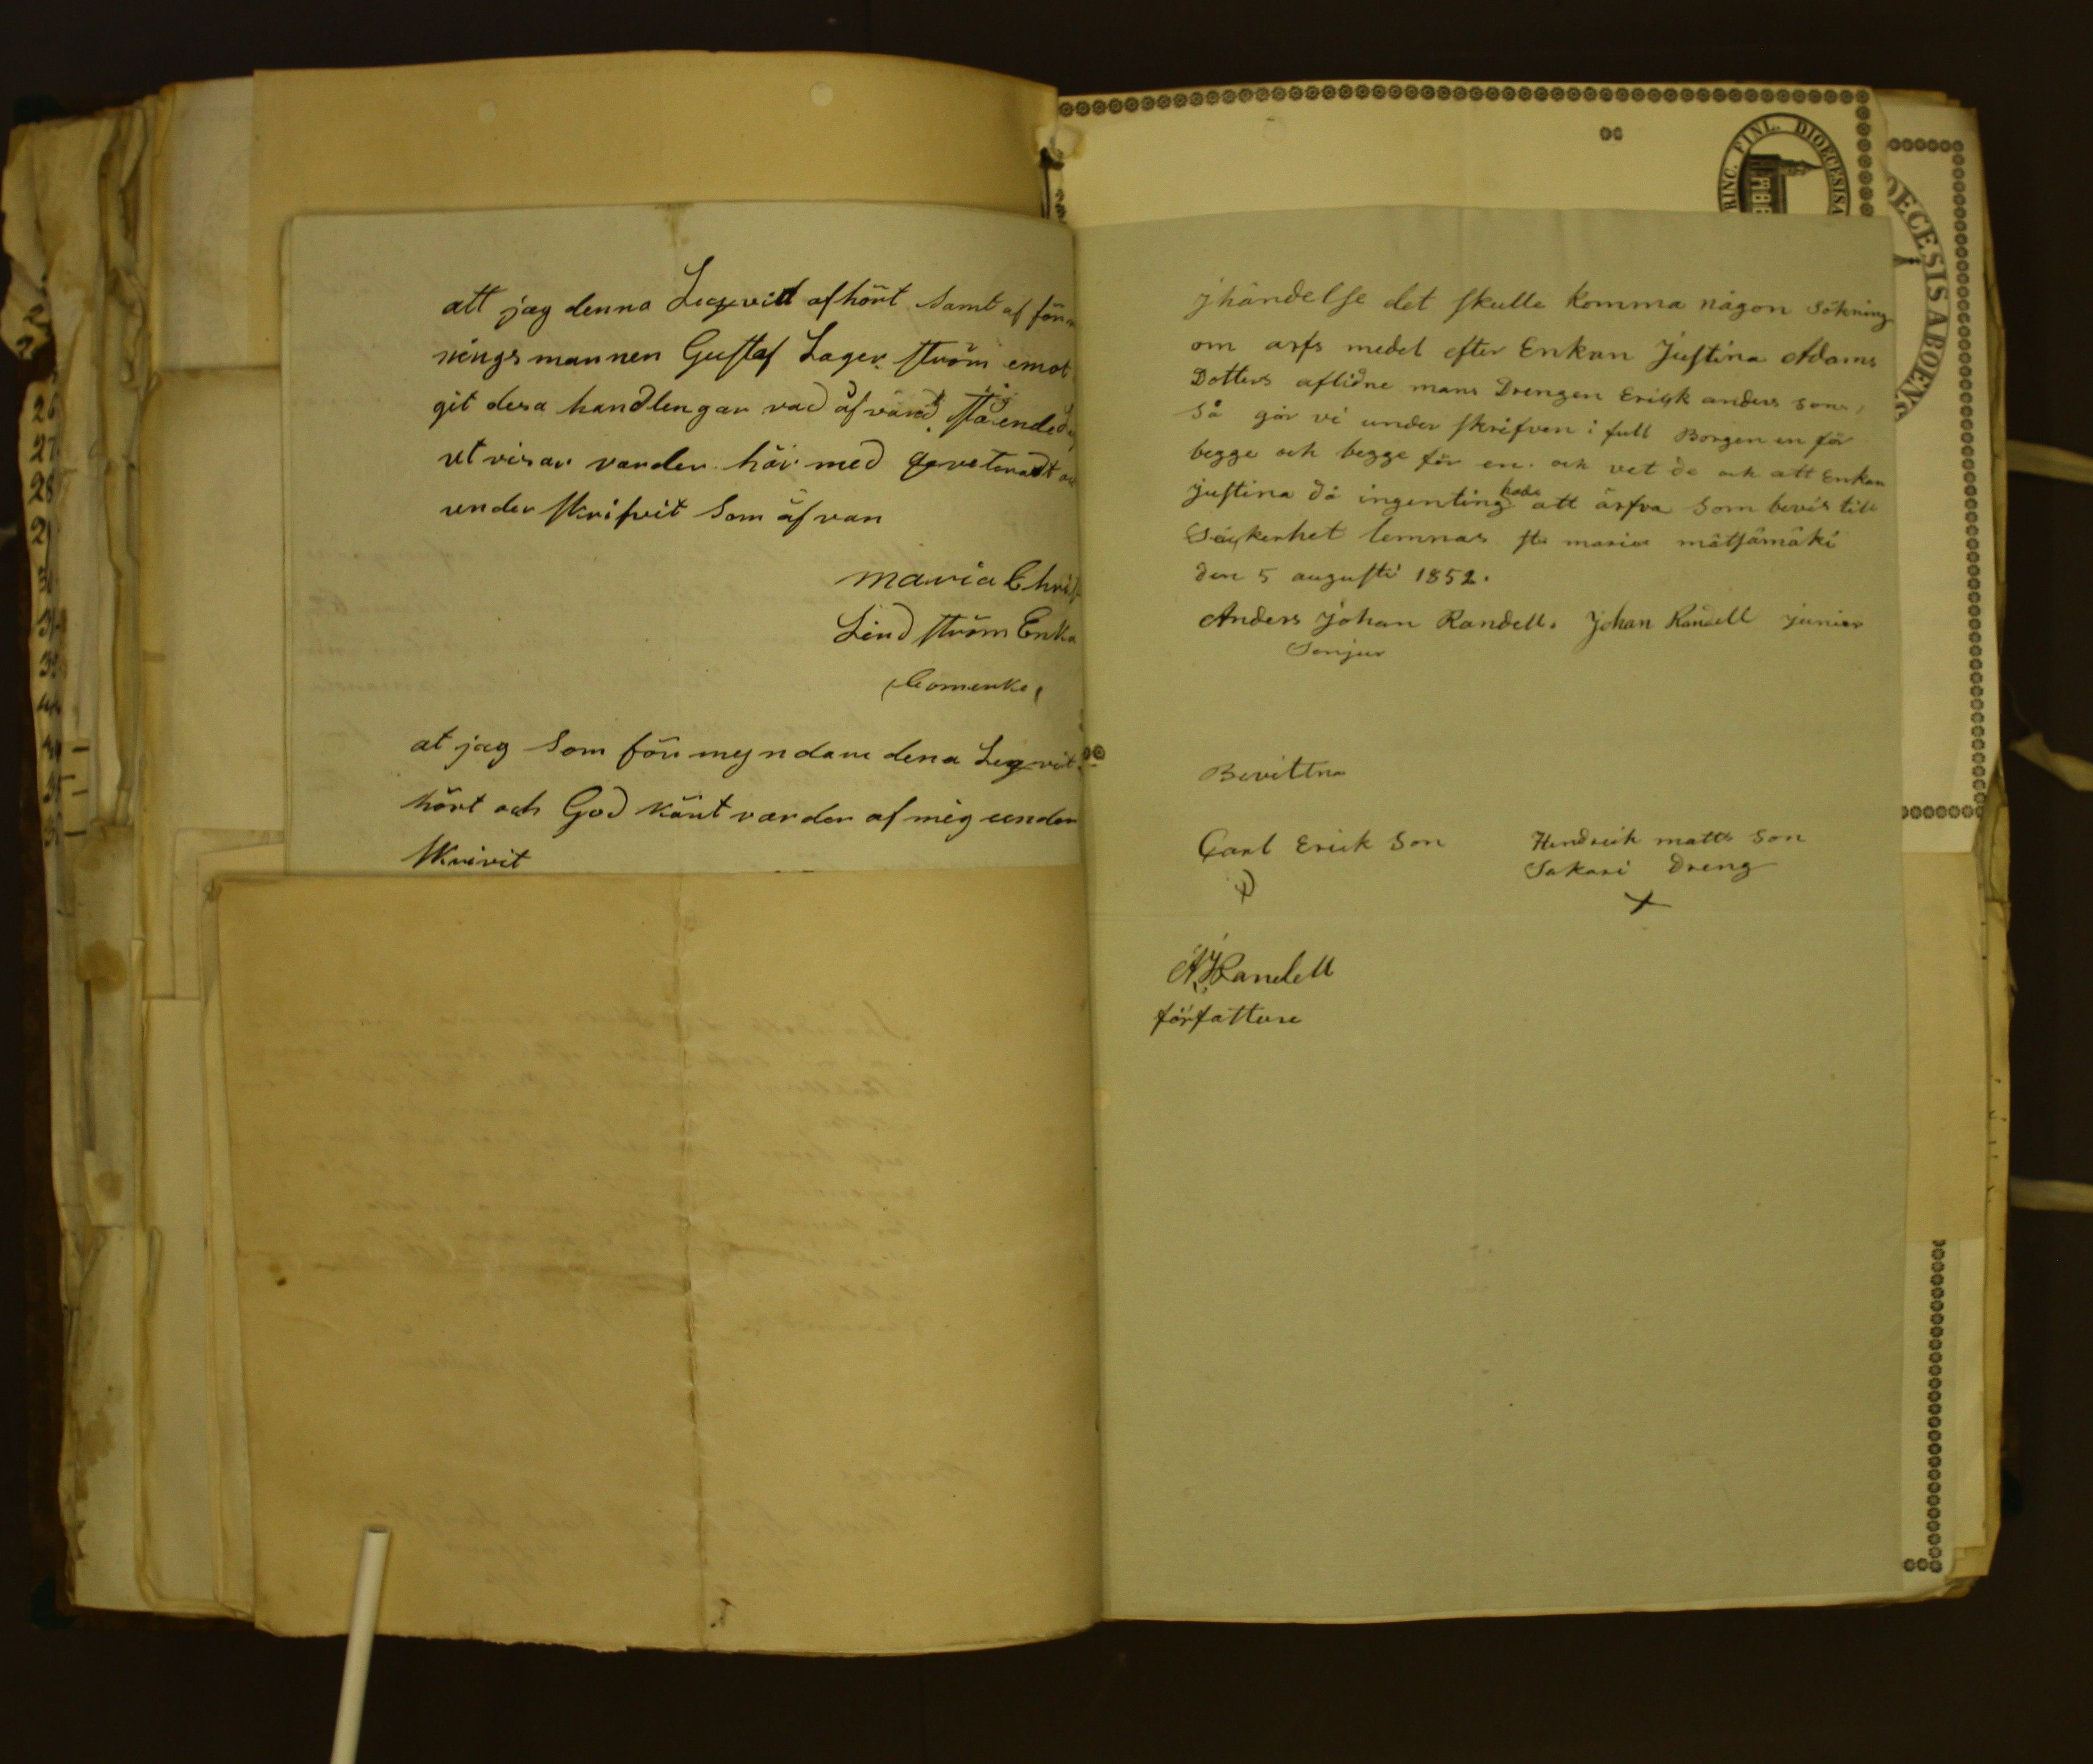 att jag denna Legevid afhört samt af för
nings mannen Gustaf Lager ström emot
git desa handlengar vad åfvand stående
ut visar varder här med qveterat
under skrifvit som åfvan
maria Chris
Lind ström Enka
Comenko
at jag som förmyndare dena Leqvit
hört och God känt varder af mig under
skrivit
jhändelse det skulle komma någon sökning
om arfs medel efter Enkan Justina Adams
Dotters aflidne mans Drengen Erick anders sons,
så går vi under skrifven i full Borgen en för
begge och begge för en. och vet de och att Enkan
hade
justina då ingenting att ärfva som bevis till
säkerhet lemnas st. maria mätsämäki
den 5 augusti 1852.
Anders Johan Randell. Johan Randell junior
Senjur
Bevittna
Carl Erick Son Hendrich matts Son
Sakari Dreng
A J Randell
författare
PRINC. FINL. DIOECESISA
OECESISABOENS
26
27
28